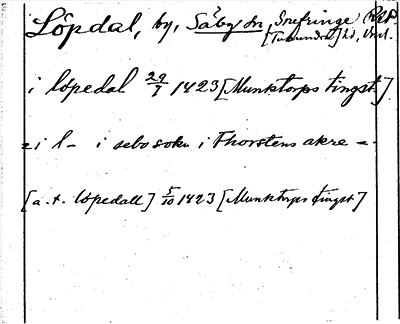 Löpdal, by, Säby sn, Snefringe RAP
[Tuhundra] hd, Vml.
i löpedal 29/7 1423 [Munktorps tingst.]
= i l- i sebo sokn i Thorstens akre =
[a.t. löpedall] 5/10 1423 [Munktorps tingst]